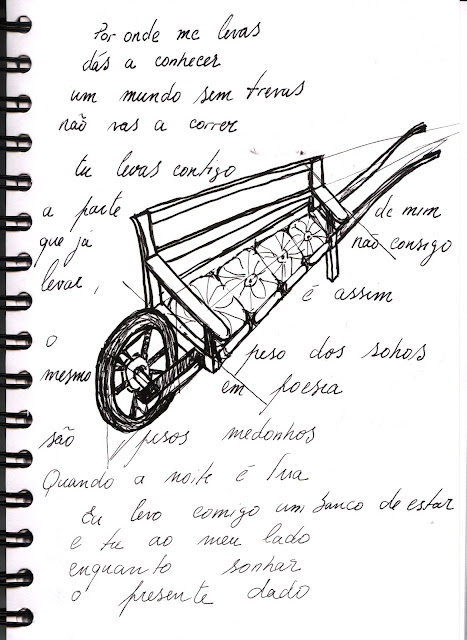 Por onde me levas
dás a conhecer
um mundo sem trevas
não vas a correr
tu levas contigo
a parte de mim
que já não consigo
levar, é assim
o peso dos sohos
mesmo em poesia
são pesos medonhos
Quando a noite é Tua
Eu levo comigo um banco de estar
e tu ao meu lado
enquanto sonhar
o presente dado